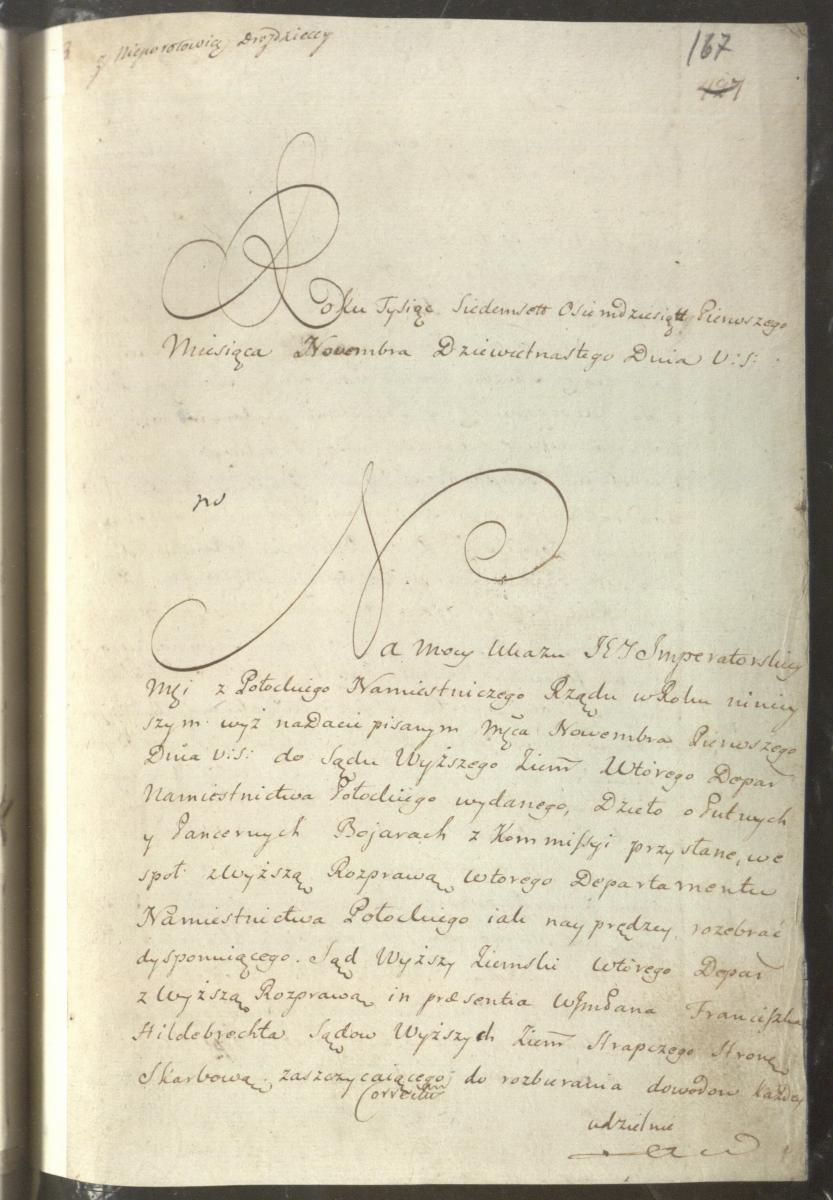 z Nieporotowicz Drozdzieccy
167
127
Roku Tysiąc Siedemsett Osiemdziesiątt Pierwszego
Miesiąca Novembra Dziewietnastego Dnia V: S:
Na Mocy Ukazu JEJ Imperatorskiey
Mći z Połockiego Namiestniczego Rządu w Roku niniey
szym wyż na Dacie pisanym Mca Nowembra Pierwszego
Dnia V: S: do Sądu Wyższego Ziem̃ Wtórego Depar̃
Namiestnictwa Połockiego wydanego, Dzieło o Putnych
y Pancernych Bojarach z Kommissyi przysłane, we
społ z Wyższą Rozprawą wtorego Departamentu
Namiestnictwa Połockiego iak nayprędzey rozebrać
dysponuiącego. Sąd Wyższy Ziemski wtórego Depar̃
z Wyższą Rozprawą in præsentia WJmPana Franciszka
Hildebrechta Sądow Wyższych Ziem̃ Strapczego Stronę
Skarbową zaszczycaiącego, do rozbierania dowodow każdey
Correctũ
udzielnie